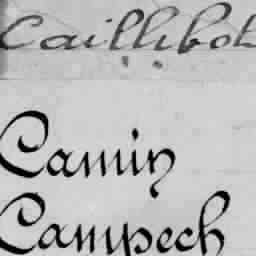 Caillibot
Camin
Campech